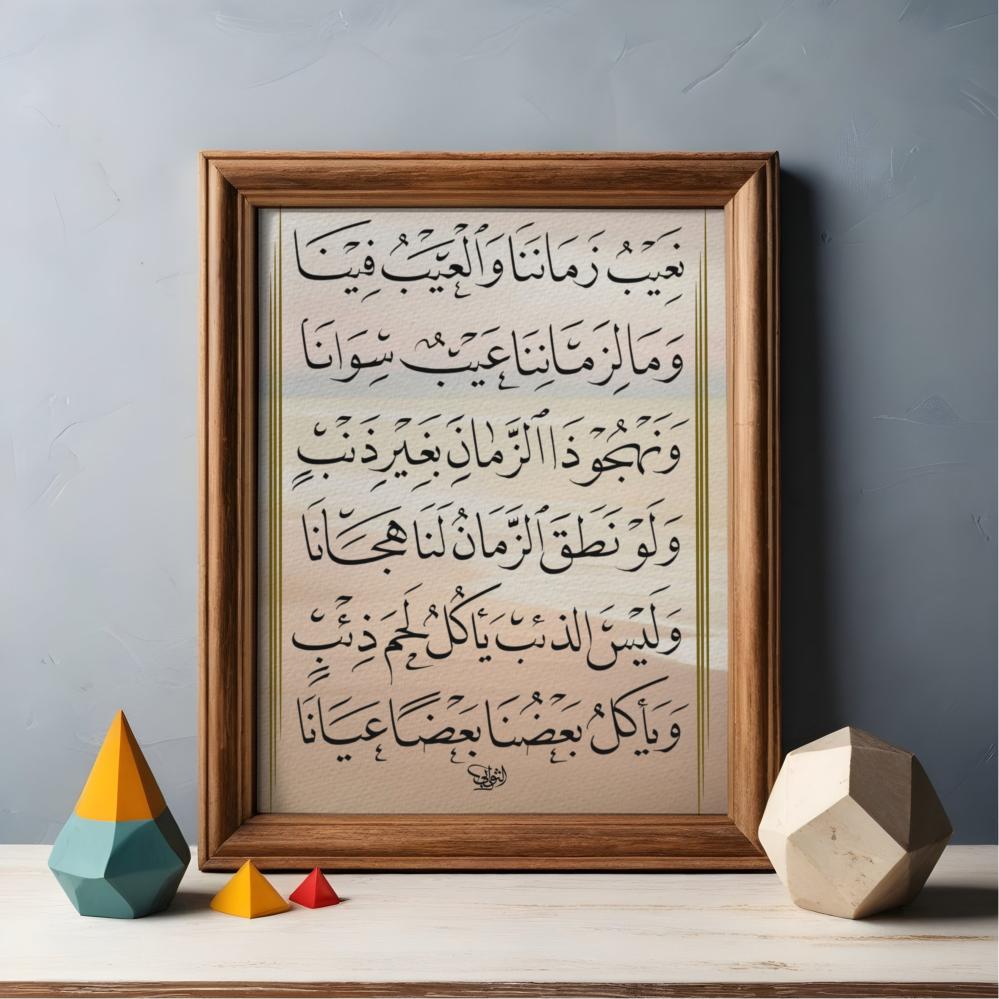 نَعِيْبُ زَمَانَنَا وَٱلْعَيْبُ فِيْنَا
وَمَا لِزَمَانِنَا عَيْبٌ سِوَانَا
وَنَهْجُوْ ذَا ٱلزَّمَانِ بِغَيْرِ ذَنْبٍ
وَلَوْ نَطَقَ ٱلزَّمَانُ لَنَا هَجَانَا
وَلَيْسَ الذِئْبُ يَأْكُلُ لَحْمَ ذِئْبٍ
وَيَأْكُلُ بَعْضُنَا بَعْضًا عَيَانَا